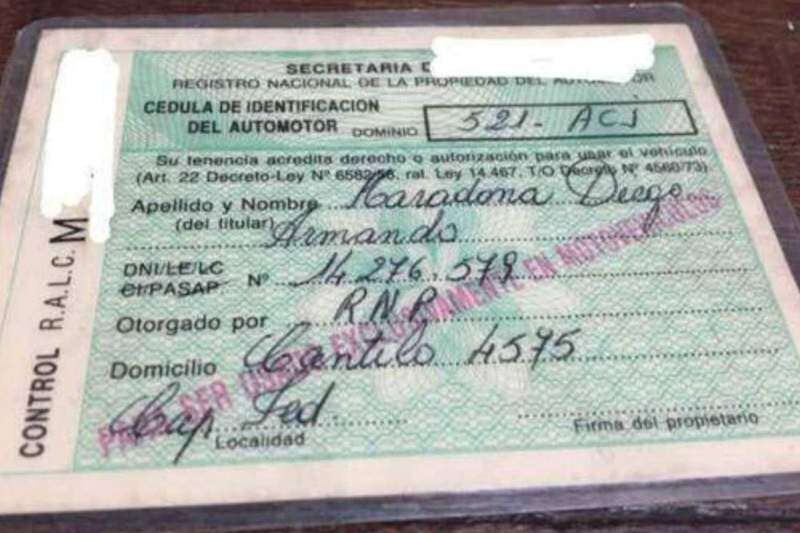 SECRETARIA D
REGISTRO NACIONAL DE LA PROPIEDAD DEL AUTOMOTOR
CEDULA DE IDENTIFICACION
DEL AUTOMOTOR DOMINIO 521- ACJ
Su tenencia acredita derecho o autorización para usar el vehículo
(Art. 22 Decreto-Ley Nº 6582/58, ral. Ley 14.467, T/O Decreto Nº 4560/73)
Apellido y Nombre Maradona Diego
(del titular) Armando
DNI/LE/LC
CI/PASAP. Nº 14.276.579
Otorgado por R.N.P.
Domicilio Cantilo 4575
Cap Fed.
Localidad
Firma del propietario
PARA SER USADO EXCLUSIVAMENTE EN MOTOVEHICULOS
CONTROL R.A.L.C. M